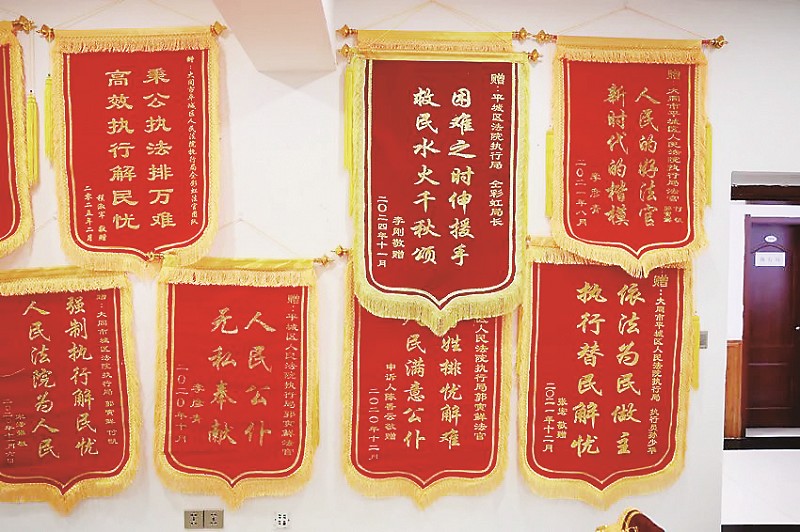 赠：大同市平城区人民法院执行局仝彩虹法官团队
秉公执法排万难
高效执行解民忧
程淑军 敬赠
二零二五年二月
赠：平城区法院执行局 仝彩虹局长
困难之时伸援手
救民水火千秋颂
李刚敬赠
二〇二四年十一月
赠 大同市平城区人民法院执行局法官
人民的好法官
新时代的楷模
李彦青
二〇二一年八月
赠：大同市城区法院执行局 郭寅鲜
强制执行解民忧
人民法院为人民
赠：平城区人民法院执行局郭寅鲜法官
人民公仆
无私奉献
李彦青
二〇二〇年十月
人民法院执行局郭寅鲜法官
姓排忧解难
民满意公仆
申诉人 敬赠
二〇二〇年十二月
赠：大同市平城区人民法院执行局 执行员孙少华
依法为民做主
执行替民解忧
张宏 敬赠
二〇二一年十二月